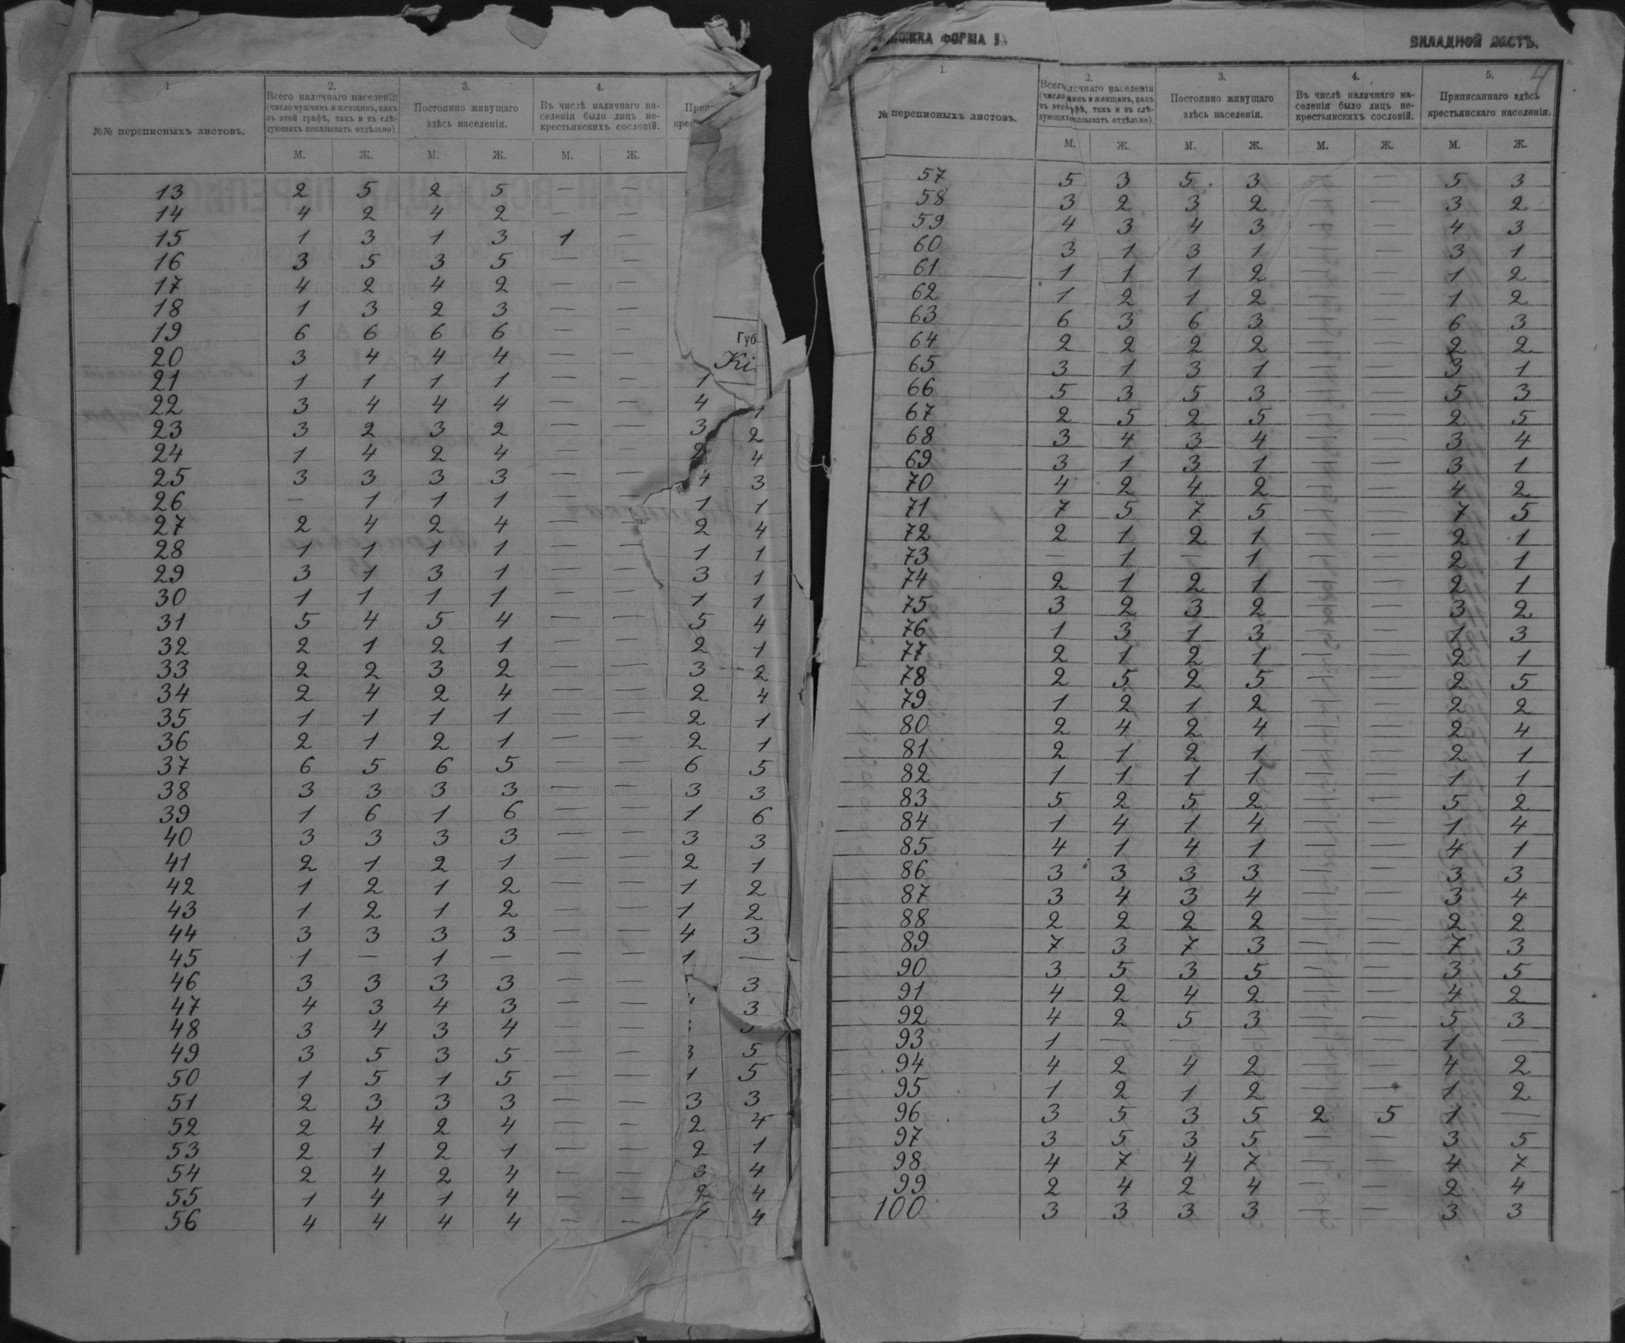 ОБЛОЖКА ФОРМА
ВКЛАДНОЙ ЛИСТЪ.
4
1 2. 3. 4. 5.
№№ переписныхъ листовъ.
Всего наличнаго населенія
(число мужчинъ и женщинъ, какъ
въ этой графѣ, такъ и въ слѣ-
дующихъ показывать отдѣльно)
Постоянно живущаго
здѣсь населенія.
Въ числѣ наличнаго на-
селенія было лицъ не-
крестьянскихъ сословій.
М. Ж. М. Ж. М. Ж.
13 2 5 2 5 — —
14 4 2 4 2 — —
15 1 3 1 3 1 —
16 3 5 3 5 — —
17 4 2 4 2 — —
18 1 3 2 3 — —
19 6 6 6 6 — —
Губ
20 3 4 4 4 — —
Кі
21 1 1 1 1 — — 1
22 3 4 4 4 — — 4 1
23 3 2 3 2 — — 3 2
24 1 4 2 4 — — 2 4
25 3 3 3 3 — — 4 3
26 — 1 1 1 — — 1 1
27 2 4 2 4 — — 2 4
28 1 1 1 1 — — 1 1
29 3 1 3 1 — — 3 1
30 1 1 1 1 — — 1 1
31 5 4 5 4 — — 5 4
32 2 1 2 1 — — 2 1
33 2 2 3 2 — — 3 2
34 2 4 2 4 — — 2 4
35 1 1 1 1 — — 2 1
36 2 1 2 1 — — 2 1
37 6 5 6 5 — — 6 5
38 3 3 3 3 — — 3 3
39 1 6 1 6 — — 1 6
40 3 3 3 3 — — 3 3
41 2 1 2 1 — — 2 1
42 1 2 1 2 — — 1 2
43 1 2 1 2 — — 1 2
44 3 3 3 3 — — 4 3
45 1 — 1 — — — 1 —
46 3 3 3 3 — — 3
47 4 3 4 3 — — 3
48 3 4 3 4 — —
49 3 5 3 5 — — 3 5
50 1 5 1 5 — — 1 5
51 2 3 3 3 — — 3 3
52 2 4 2 4 — — 2 4
53 2 1 2 1 — — 2 1
54 2 4 2 4 — — 3 4
55 1 4 1 4 — — 2 4
56 4 4 4 4 — — 4
1. 2. 3. 4. 5.
№ переписныхъ листовъ.
Постоянно живущаго
здѣсь населенія.
Въ числѣ наличнаго на-
селенія было лицъ не-
крестьянскихъ сословій.
Приписаннаго здѣсь
крестьянскаго населенія.
М. Ж. М. Ж. М. Ж. М. Ж.
57 5 3 5 3 — — 5 3
58 3 2 3 2 — — 3 2
59 4 3 4 3 — — 4 3
60 3 1 3 1 — — 3 1
61 1 1 1 2 — — 1 2
62 1 2 1 2 — — 1 2
63 6 3 6 3 — — 6 3
64 2 2 2 2 — — 2 2
65 3 1 3 1 — — 3 1
66 5 3 5 3 — — 5 3
67 2 5 2 5 — — 2 5
68 3 4 3 4 — — 3 4
69 3 1 3 1 — — 3 1
70 4 2 4 2 — — 4 2
71 7 5 7 5 — — 7 5
72 2 1 2 1 — — 2 1
73 — 1 — 1 — — 2 1
74 2 1 2 1 — — 2 1
75 3 2 3 2 — — 3 2
76 1 3 1 3 — — 1 3
77 2 1 2 1 — — 2 1
78 2 5 2 5 — — 2 5
79 1 2 1 2 — — 2 2
80 2 4 2 4 — — 2 4
81 2 1 2 1 — — 2 1
82 1 1 1 1 — — 1 1
83 5 2 5 2 — — 5 2
84 1 4 1 4 — — 1 4
85 4 1 4 1 — — 4 1
86 3 3 3 3 — — 3 3
87 3 4 3 4 — — 3 4
88 2 2 2 2 — — 2 2
89 7 3 7 3 — — 7 3
90 3 5 3 5 — — 3 5
91 4 2 4 2 — — 4 2
92 4 2 5 3 — — 5 3
93 1 — — — — — 1 —
94 4 2 4 2 — — 4 2
95 1 2 1 2 — — 1 2
96 3 5 3 5 2 5 1 —
97 3 5 3 5 — — 3 5
98 4 7 4 7 — — 4 7
99 2 4 2 4 — — 2 4
100 3 3 3 3 — — 3 3